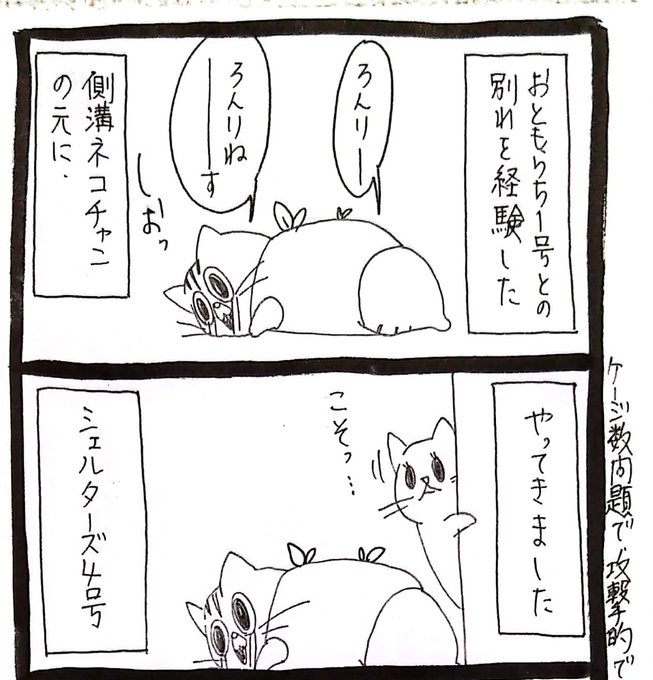 おともらち1号との
別れを経験した
ろんりー
ろんりね
ーーす
しおっ
側溝ネコチャン
の元に、
やってきました
こそっ…
シェルターズ4号
ケージ数問題で、攻撃的で